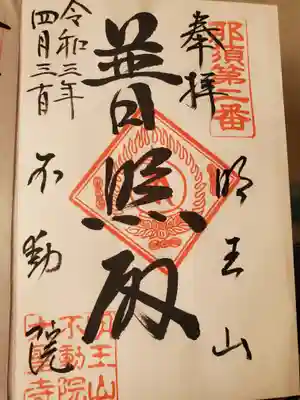 那須第二番
奉拝
明王山
普照殿
令和三年
四月三日
不動院
明王山
不動院